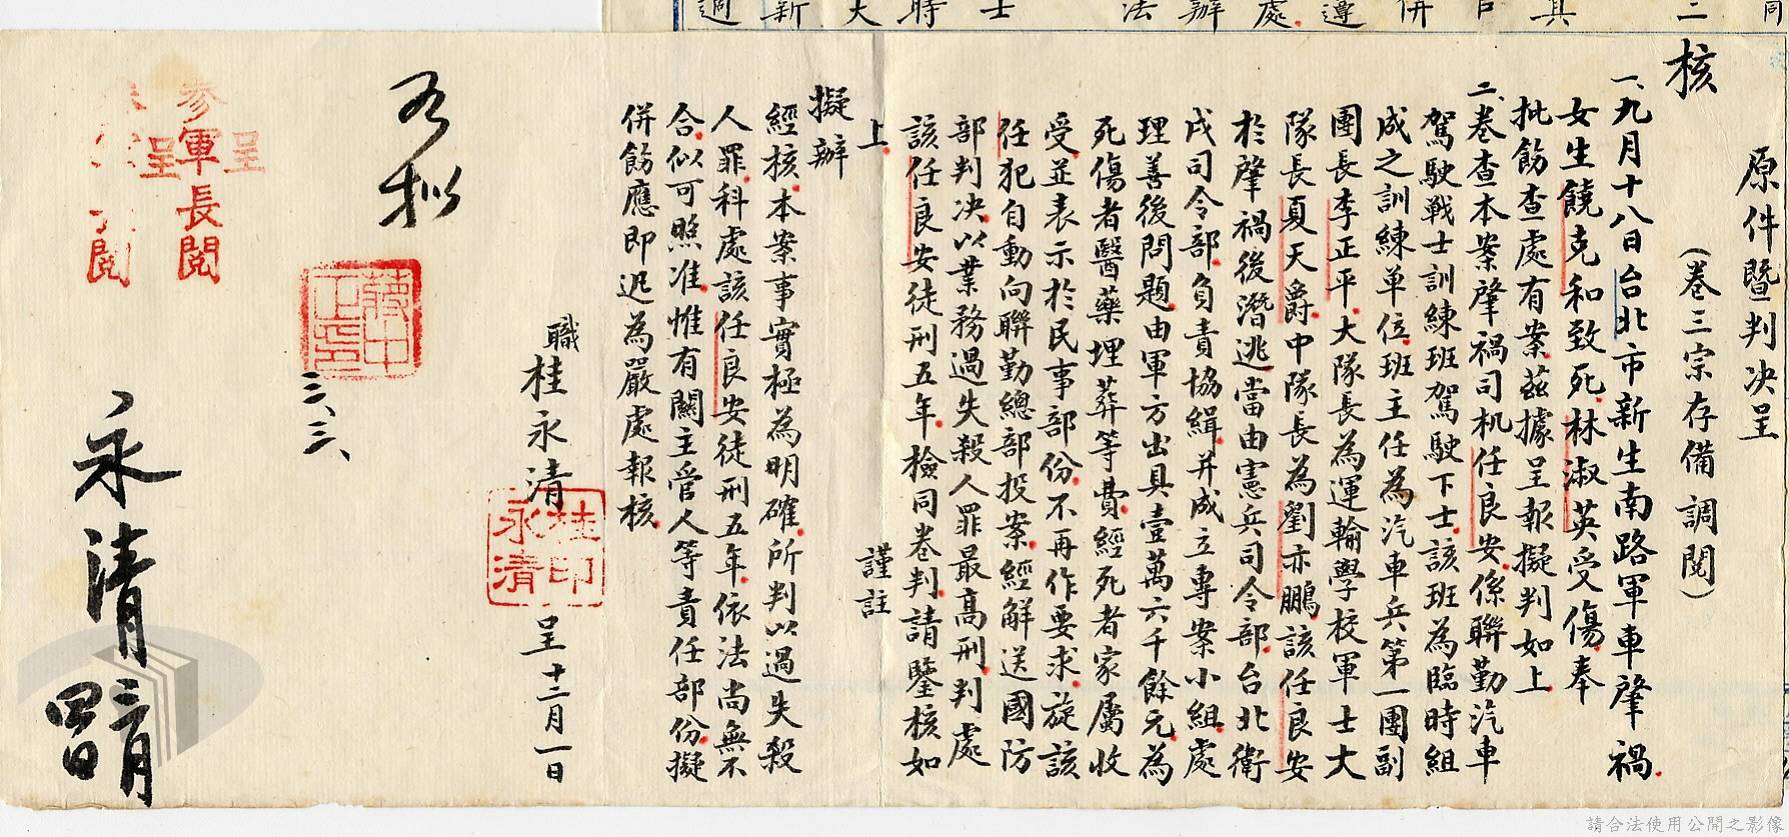 核
原件暨判决呈
(卷三宗存備調閱)
一、九月十八日台北市新生南路軍車肇禍
女生饒克和致死林淑英受傷奉
批飭查處有案茲據呈報擬判如上
二、卷查本案肇禍司机任良安係聯勤汽車
駕駛戰士訓練班駕駛下士該班為臨時組
成之訓練单位班主任為汽車兵第一團副
團長李正平大隊長為運輸學校軍士大
隊長夏天爵中隊長為劉亦鵬該任良安
於肇禍後潛逃當由憲兵司令部台北衛
戍司令部負責協緝并成立專案小組處
理善後問題由軍方出具壹萬六千餘元為
死傷者醫藥埋葬等費經死者家屬收
受並表示於民事部份不再作要求旋該
任犯自動向聯勤總部投案經解送國防
部判决以業務過失殺人罪最高刑判處
該任良安徒刑五年檢同卷判請鑒核如
上
謹註
擬辦
經核本案事實極為明確所判以過失殺
人罪科處該任良安徒刑五年依法尚無不
合似可照准惟有關主管人等責任部份擬
併飭應即迅為嚴處報核
職桂永清
桂永清印
呈十二月一日
如擬
蔣中正印
三、三、
呈
參軍長閱
呈
閱
永清
請合法使用公開之影像